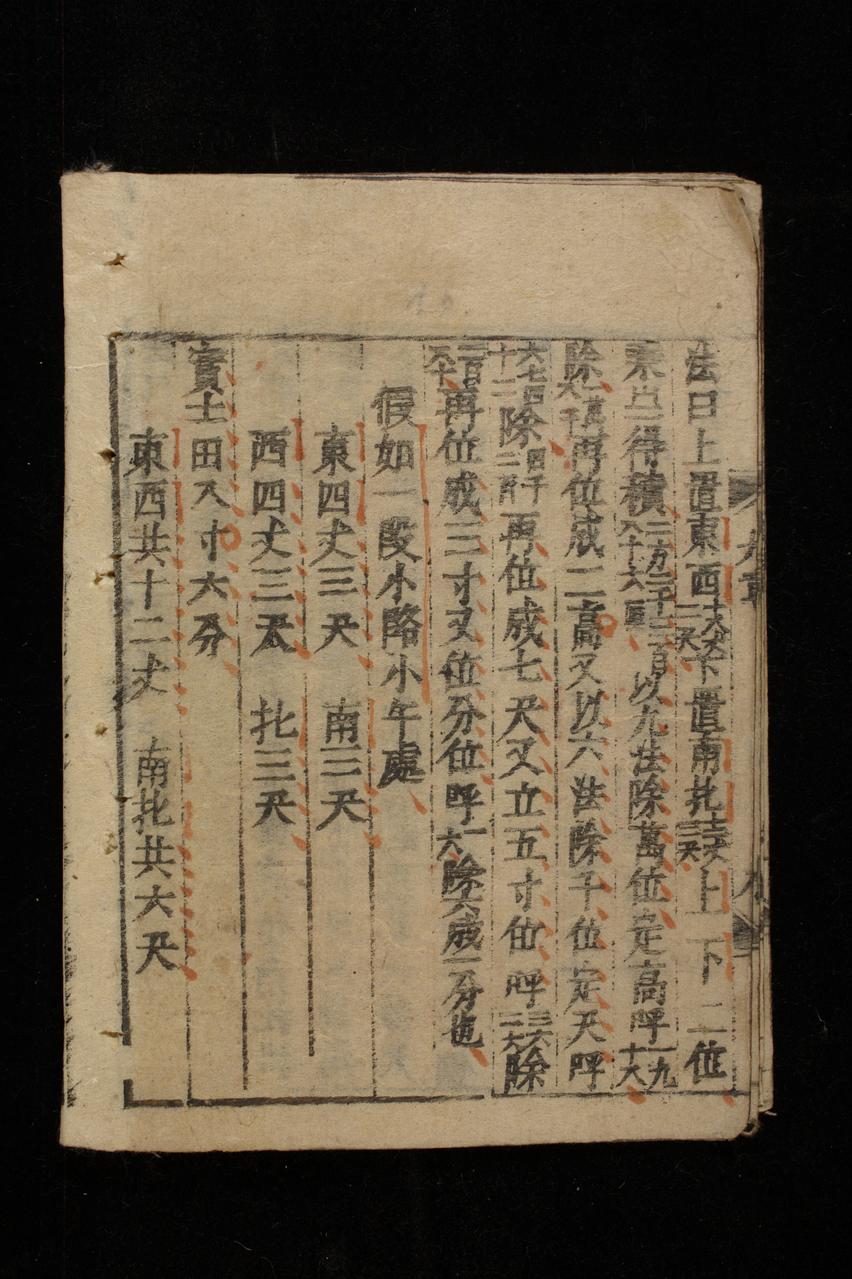 法曰上置東西十八丈二尺下置南北十二丈三尺上下二位
乘也得積二万二千三百八十六以九法除萬位定高呼一九十八
除再位成二高又以六法除千位定尺呼
六七四十二除四千二百再位成七尺又立五寸位呼三六二六除
再位成三寸又位分位呼一六除六成一分也
假如一段小路小午處
東四丈三尺 南三尺
西四丈三尺 北三尺
實土田八寸六分
東西共十二丈 南北共六尺
九章